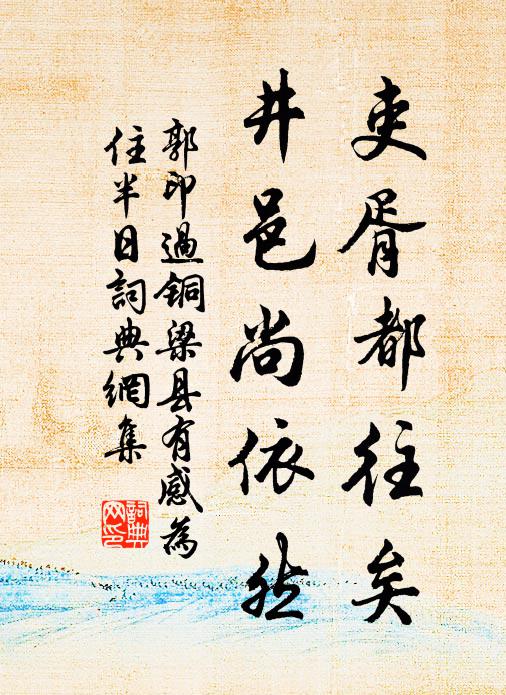 吏胥都往矣
井邑尚依然
郭印過銅梁县有感為
住半日詞典網集
詞典
网印